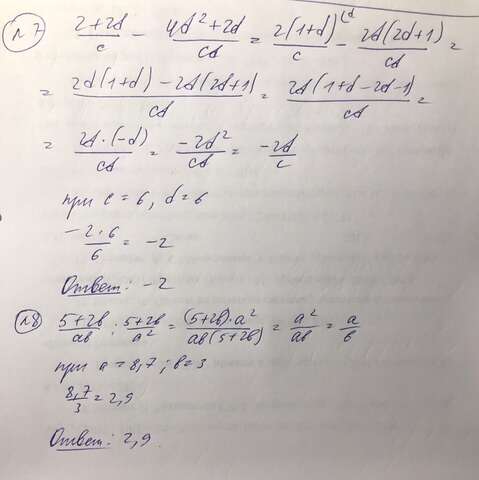 №7 (2+2d)/c − (4d²+2d)/cd = 2(1+d)/c ⁽ᵈ − 2d(2d+1)/cd =
= (2d(1+d)−2d(2d+1))/cd = 2d(1+d−2d−1)/cd =
= 2d·(−d)/cd = −2d²/cd = −2d/c
при c=6, d=6
−2·6/6 = −2
Ответ: −2
№8 (5+2b)/ab : (5+2b)/a² = (5+2b)·a²/ab(5+2b) = a²/ab = a/b
при a=8,7; b=3
8,7/3 = 2,9
Ответ: 2,9